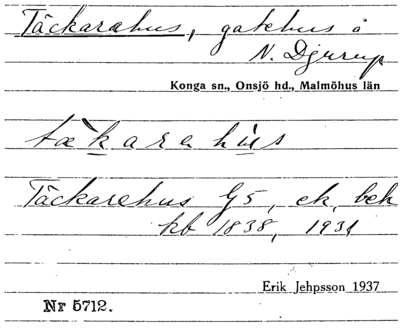 Täckarehus, gatehus å
N. Djurup
Konga sn., Onsjö hd., Malmöhus län
tækarahus
Täckarehus G5, ek, bek
kb 1838, 1931
Erik Jehpsson 1937
Nr 5712.